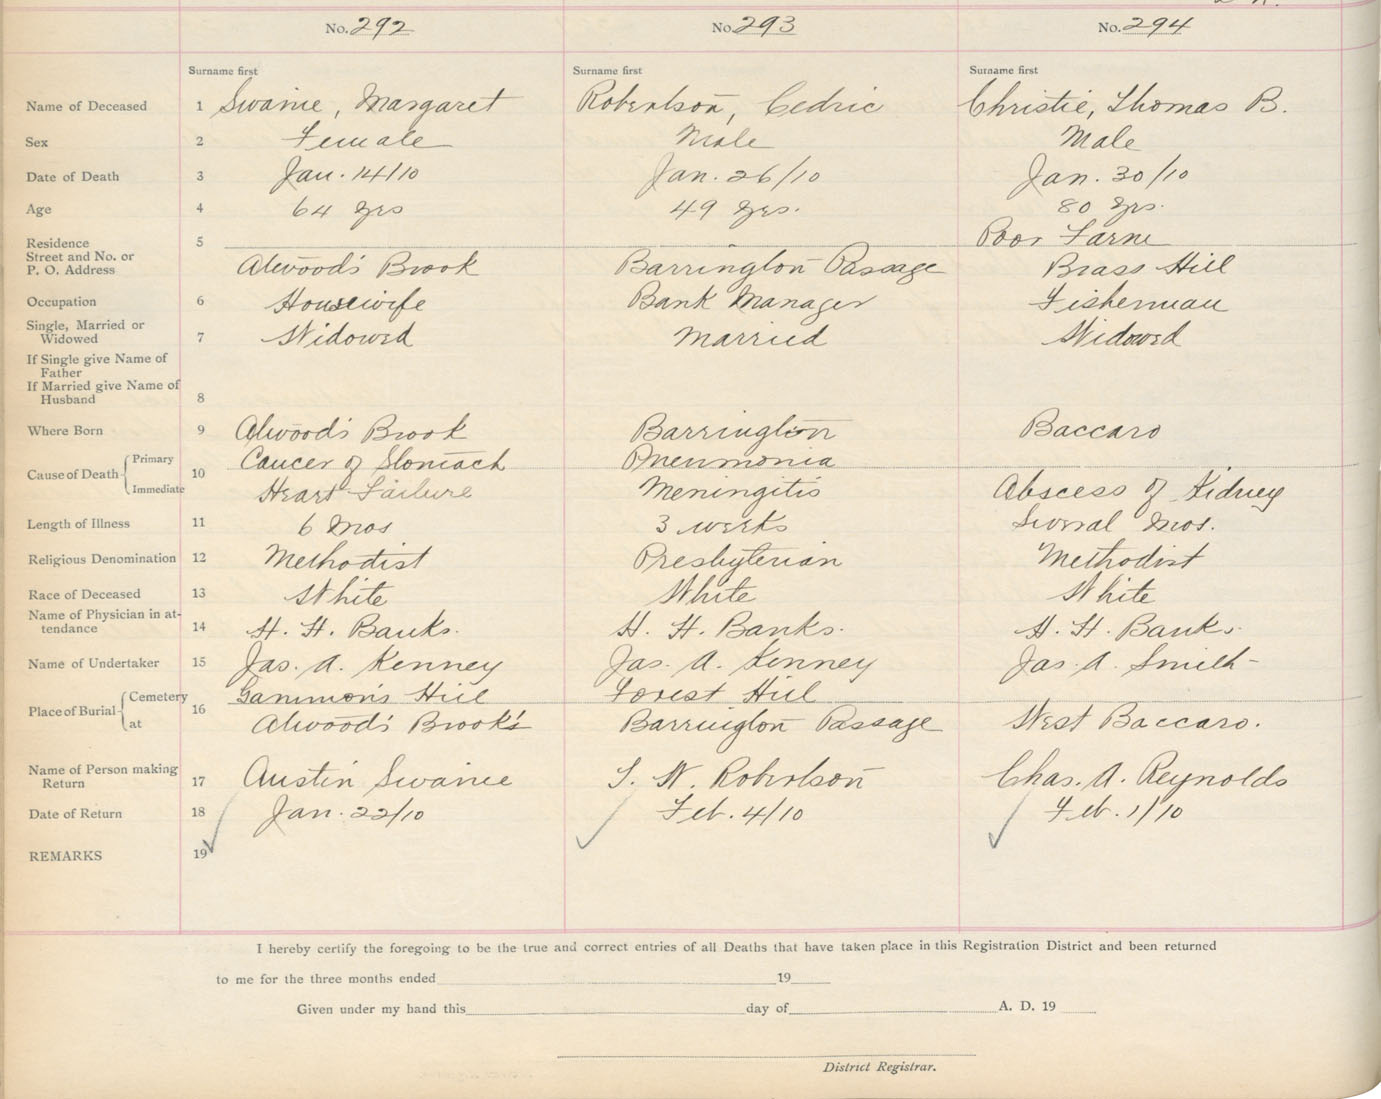 No. 292 No. 293 No. 294
Surname first Surname first Surname first
Name of Deceased 1 Swaine, Margaret Robertson, Cedric Christie, Thomas B.
Sex 2 Female Male Male
Date of Death 3 Jan. 14/10 Jan. 26/10 Jan. 30/10
Age 4 64 yrs 49 yrs. 80 yrs.
Residence 5 Poor Farm
Street and No. or
P. O. Address Atwood's Brook Barrington Passage Brass Hill
Occupation 6 Housewife Bank Manager Fisherman
Single, Married or
Widowed 7 Widowed Married Widowed
If Single give Name of
Father
If Married give Name of
Husband 8
Where Born 9 Atwood's Brook Barrington Baccaro
Cause of Death Primary 10 Cancer of Stomach Pneumonia
Immediate Heart Failure Meningitis Abscess of Kidney
Length of Illness 11 6 Mos 3 weeks Several Mos.
Religious Denomination 12 Methodist Presbyterian Methodist
Race of Deceased 13 White White White
Name of Physician in at-
tendance 14 H. H. Banks. H. H. Banks. H. H. Banks.
Name of Undertaker 15 Jas. A. Kenney Jas. A. Kenney Jas. A. Smith
Place of Burial Cemetery 16 Gammon's Hill Forest Hill
at Atwood's Brook's Barrington Passage West Baccaro.
Name of Person making
Return 17 Austin Swaine T. W. Robertson Chas. A. Reynolds
Date of Return 18 Jan. 22/10 Feb. 4/10 Feb. 1/10
REMARKS 19
I hereby certify the foregoing to be the true and correct entries of all Deaths that have taken place in this Registration District and been returned
to me for the three months ended 19
Given under my hand this day of A. D. 19
District Registrar.